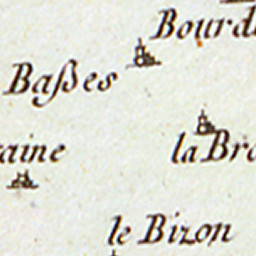 Bourd
Baſses
aine
la Bro
le Bizon